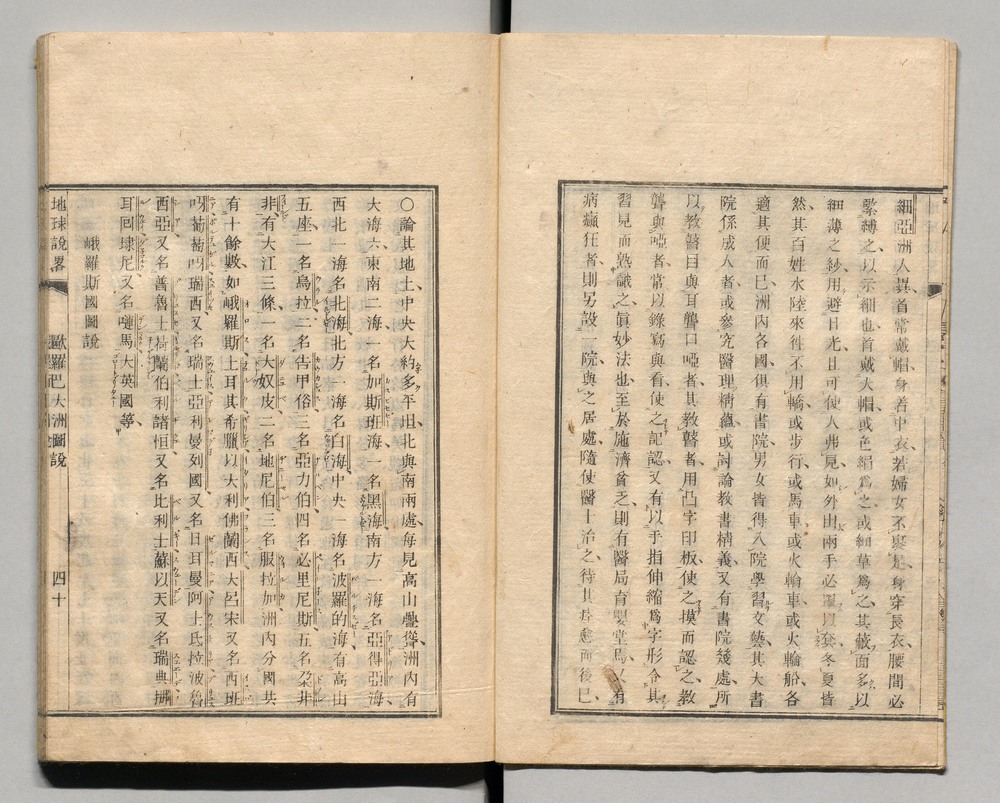 細亞洲人異首常戴帽身若中衣若婦女不裹足身穿長衣腰間必
緊縛之以示細也首戴大帽或色絹爲之或細草爲之其蔽面多以
細薄之紗用避日光且可使人弗見如外出兩手必以套冬夏皆
然其百姓水陸來往不用輪或步行或馬車或火輪車或火輪船各
適其便而已洲內各國俱有書院男女皆得入院學習文藝其大書
院係成人者或參究醫理精蘊或討論教書精義又有書院幾處所
以教瞽目與耳聾口啞者其教瞽者用凸字印板使之摸而認之教
聾與啞者常以錄寫與看使之記認又有以手指伸縮爲字形令其
習見而熟識之眞妙法也至於施濟貧乏則有醫局育嬰堂焉又有
病癲狂者則另設一院與之居處隨使醫士治之待其痊愈而後已
〇論其地土中央大約多平坦北與南兩處每見高山疊聳洲內有
大海六東南二海一名加斯班海一名黑海南方一海名亞得亞海
西北一海名北海北方一海名白海中央一海名波羅的海有高山
五座一名烏拉二名告甲俗三名亞力伯四名必里尼斯五名朶非
非有大江三條一名大奴皮二名地尼伯三名服拉加洲內分國共
有十餘數如峨羅斯土耳其希臘以大利佛蘭西大呂宋又名西班
呀葡萄呀瑞西又名瑞士亞利曼列國又名日耳曼阿士氏拉波魯
西亞又名普魯士荷蘭伯利諸恒又名比利士蘇以天又名瑞典挪
耳回㻖尼又名嗹馬大英國等
峨羅斯國圖說
地球說畧
歐羅巴大洲圖說
四十